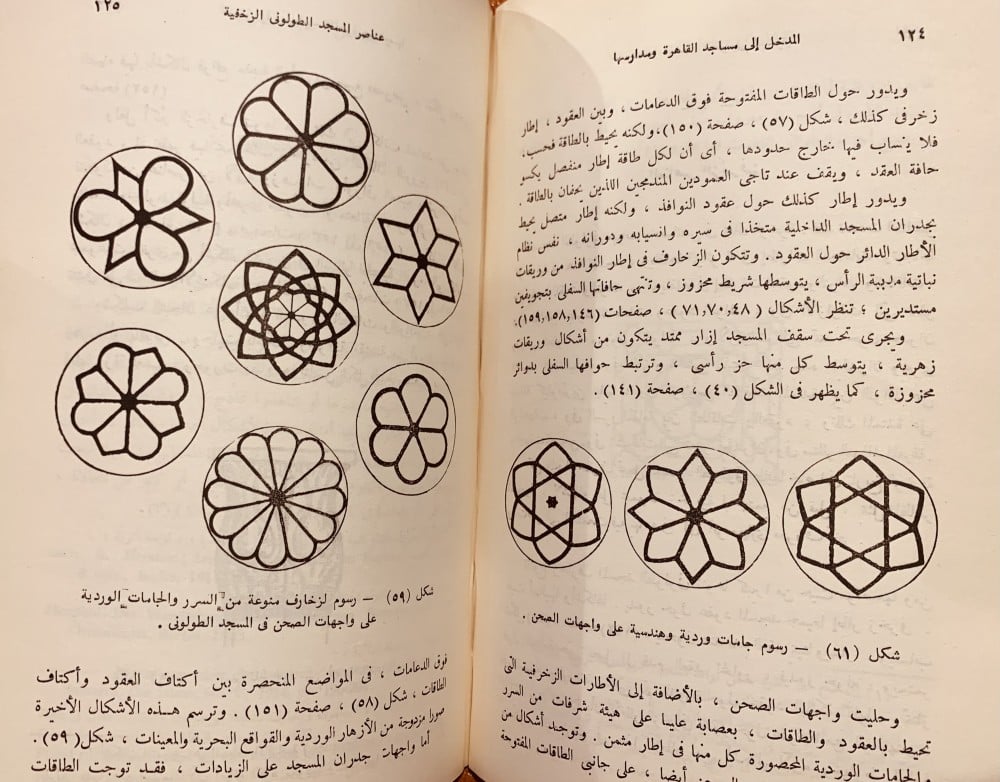 ١٢٤
المدخل إلى مساجد القاهرة ومدارسها
ويدور حول الطاقات المفتوحة فوق الدعامات ، وبين العقود ، إطار
زخرفى كذلك ، شكل (٥٧) ، صفحة (١٥٠)، ولكنه يحيط بالطاقة فحسب.
فلا ينساب فيها خارج حدودها ، أى أن لكل طاقة إطار منفصل يكسو
حافة العقد ، ويقف عند تاجى العمودين المندمجين اللاذين يحفان بالطاقة .
ويدور إطار كذلك حول عقود النوافذ ، ولكنه إطار متصل يحيط
بجدران المسجد الداخلية متخذا فى سيره وانسيابه ودورانه ، نفس نظام
الأطار الدائر حول العقود . وتتكون الزخارف فى إطار النوافذ من وريقات
نباتية مدببة الرأس ، يتوسطها شريط محزوز ، وتنتهى حافاتها السفلى بتجويفين
مستديرين ؛ تنظر الأشكال (٧١,٧٠,٤٨) ، صفحات (١٥٩,١٥٨,١٤٦).
ويجرى تحت سقف المسجد إزار ممتد يتكون من أشكال وريقات
زهرية ، يتوسط كل منها حز رأسى ، وترتبط حوافها السفلى بدوائر
محزوزة ، كما يظهر فى الشكل (٤٠) ، صفحة (١٤١).
شكل (٦١) — رسوم جامات وردية وهندسية على واجهات الصحن .
وحليت واجهات الصحن ، بالأضافة إلى الأطارات الزخرفية التى
تحيط بالعقود والطاقات ، بعصابة عليا على هيئة شرفات من السرر
والجامات الوردية المحصورة كل منها فى إطار مثمن . وتوجد أشكال من
أيضا ، على جانبى الطاقات المفتوحة
١٢٥
عناصر المسجد الطولونى الزخرفية
شكل (٥٩) — رسوم لزخارف منوعة من السرر والجامات الوردية
على واجهات الصحن فى المسجد الطولونى .
فوق الدعامات ، فى المواضع المنحصرة بين أكتاف العقود وأكتاف
الطاقات ، شكل (٥٨) ، صفحة (١٥١) . وترسم هذه الأشكال الأخيرة
صورا مزدوجة من الأزهار الوردية والقواقع البحرية والمعينات ، شكل (٥٩).
أما واجهات جدران المسجد على الزيادات ، فقد توجت الطاقات